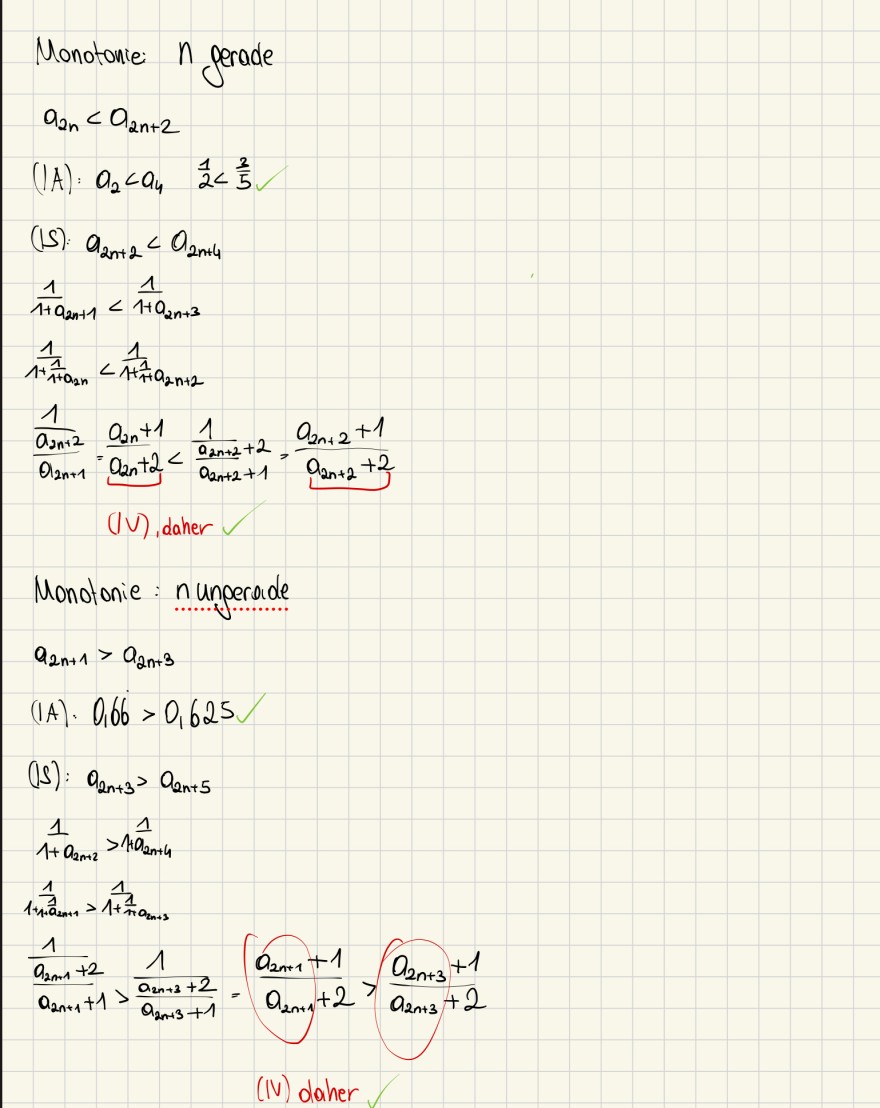 Monotonie: n gerade
a_{2n} < a_{2n+2}
(IA): a_2 < a_4 \frac{1}{2} < \frac{3}{5} ✓
(IS): a_{2n+2} < a_{2n+4}
\frac{1}{1+a_{2n+1}} < \frac{1}{1+a_{2n+3}}
\frac{1}{1+\frac{1}{1+a_{2n}}} < \frac{1}{1+\frac{1}{1+a_{2n+2}}}
\frac{1}{\frac{a_{2n}+2}{a_{2n}+1}} = \frac{a_{2n}+1}{a_{2n}+2} < \frac{1}{\frac{a_{2n+2}+2}{a_{2n+2}+1}} = \frac{a_{2n+2}+1}{a_{2n+2}+2}
(IV), daher ✓
Monotonie: n ungerade
a_{2n+1} > a_{2n+3}
(IA): 0,66 > 0,625 ✓
(IS): a_{2n+3} > a_{2n+5}
\frac{1}{1+a_{2n+2}} > \frac{1}{1+a_{2n+4}}
\frac{1}{1+\frac{1}{1+a_{2n+1}}} > \frac{1}{1+\frac{1}{1+a_{2n+3}}}
\frac{1}{\frac{a_{2n+1}+2}{a_{2n+1}+1}} > \frac{1}{\frac{a_{2n+3}+2}{a_{2n+3}+1}} = \frac{a_{2n+1}+1}{a_{2n+1}+2} > \frac{a_{2n+3}+1}{a_{2n+3}+2}
(IV) daher ✓